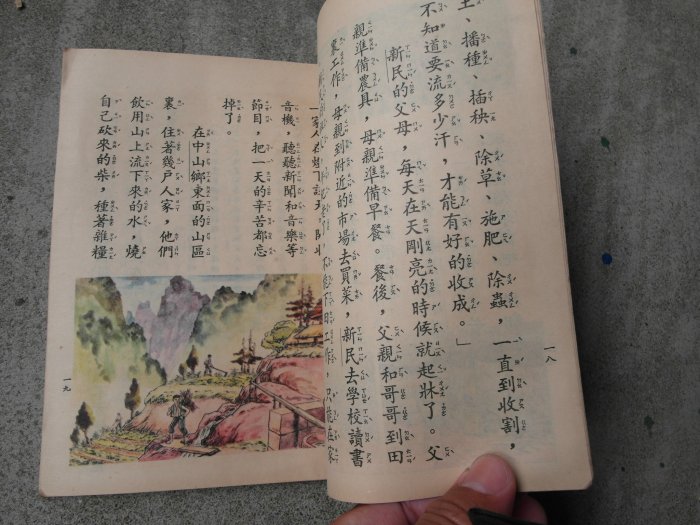 土、播種、插秧、除草、施肥、除蟲,一直到收割,
不知道要流多少汗,才能有好的收成。」
新民的父母,每天在天剛亮的時候就起牀了。父
親準備農具,母親準備早餐。餐後,父親和哥哥到田
裏工作,母親到附近的市場去買菜,新民去學校讀書
工作,只能在家
一八
音機,聽聽新聞和音樂等
節目,把一天的辛苦都忘
掉了。
在中山鄉東面的山區
裏,住著幾戶人家,他們
飲用山上流下來的水,燒
自己砍來的柴,種著雜糧
一九